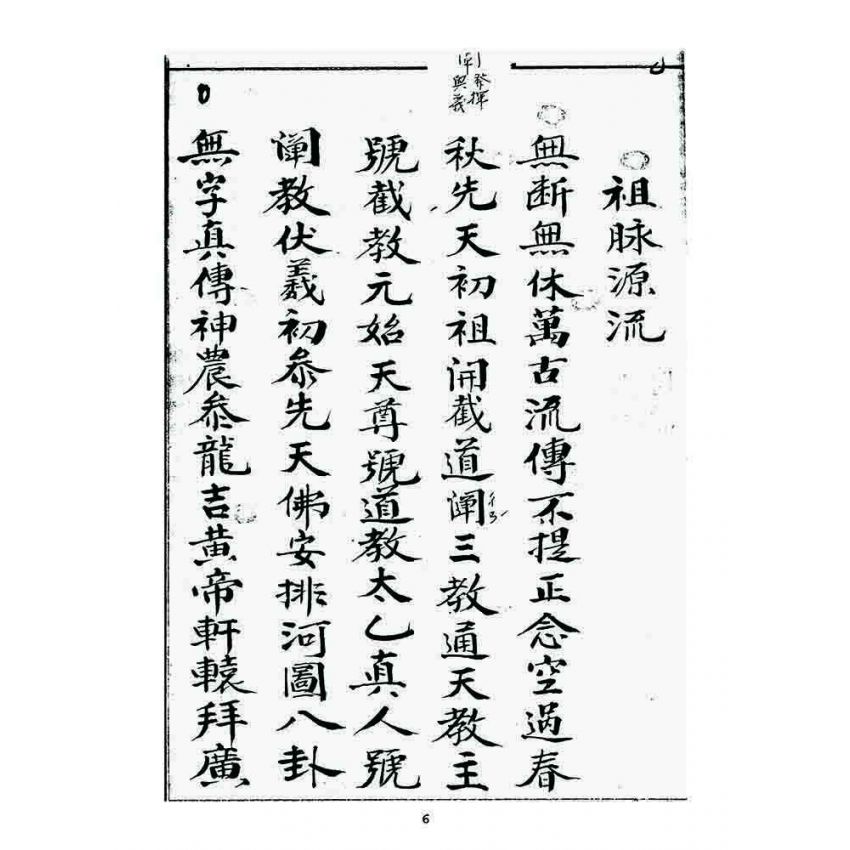 祖脉源流
無断無休萬古流傳不提正念空過春
秋先天初祖開截道闡三教通天教主
號截教元始天尊號道教太乙真人號
闡教伏羲初叅先天佛安排河圖八卦
無字真傳神農叅龍吉黄帝軒轅拜廣
6